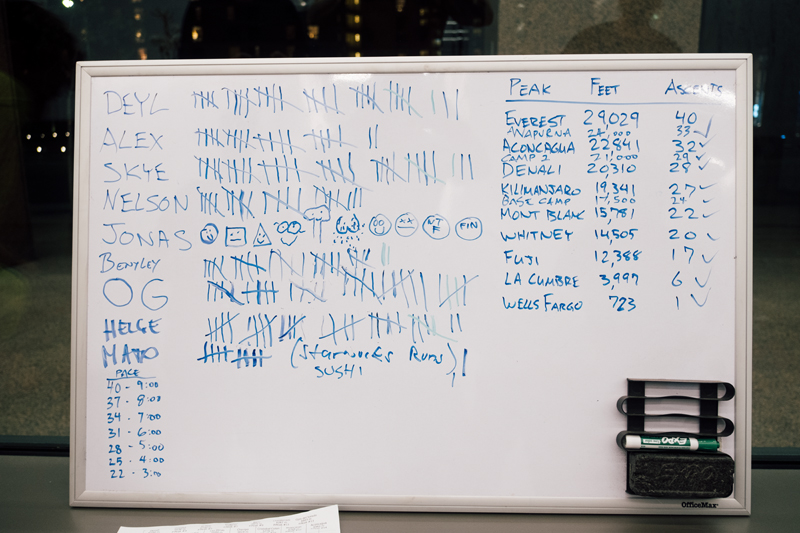 DEYL
ALEX
SKYE
NELSON
JONAS FIN
BENTLEY
OG
HELGE
MATO (Starwucks Runs),
SUSHI
PACE
40 - 9:00
37 - 8:00
34 - 7:00
31 - 6:00
28 - 5:00
25 - 4:00
22 - 3:00
PEAK FEET ASCENTS
EVEREST 29,029 40
ANAPURNA 24,000 33 ✓
ACONCAGUA 22,841 32 ✓
CAMP 2 21,000 29 ✓
DENALI 20,310 28 ✓
KILIMANJARO 19,341 27 ✓
BASE CAMP 17,500 24 ✓
MONT BLANK 15,781 22 ✓
WHITNEY 14,505 20 ✓
FUJI 12,388 17 ✓
LA CUMBRE 3,997 6 ✓
WELLS FARGO 723 1 ✓
EXPO
OfficeMax